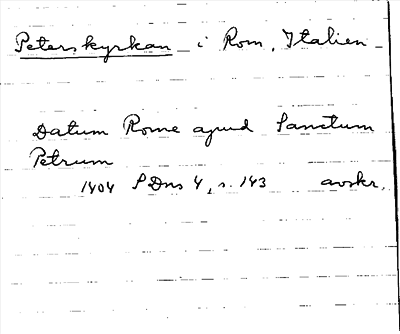 Peterskyrkan i Rom, Italien
Datum Rome apud Sanctum
Petrum
1404 SDns 4, s. 143 avskr.